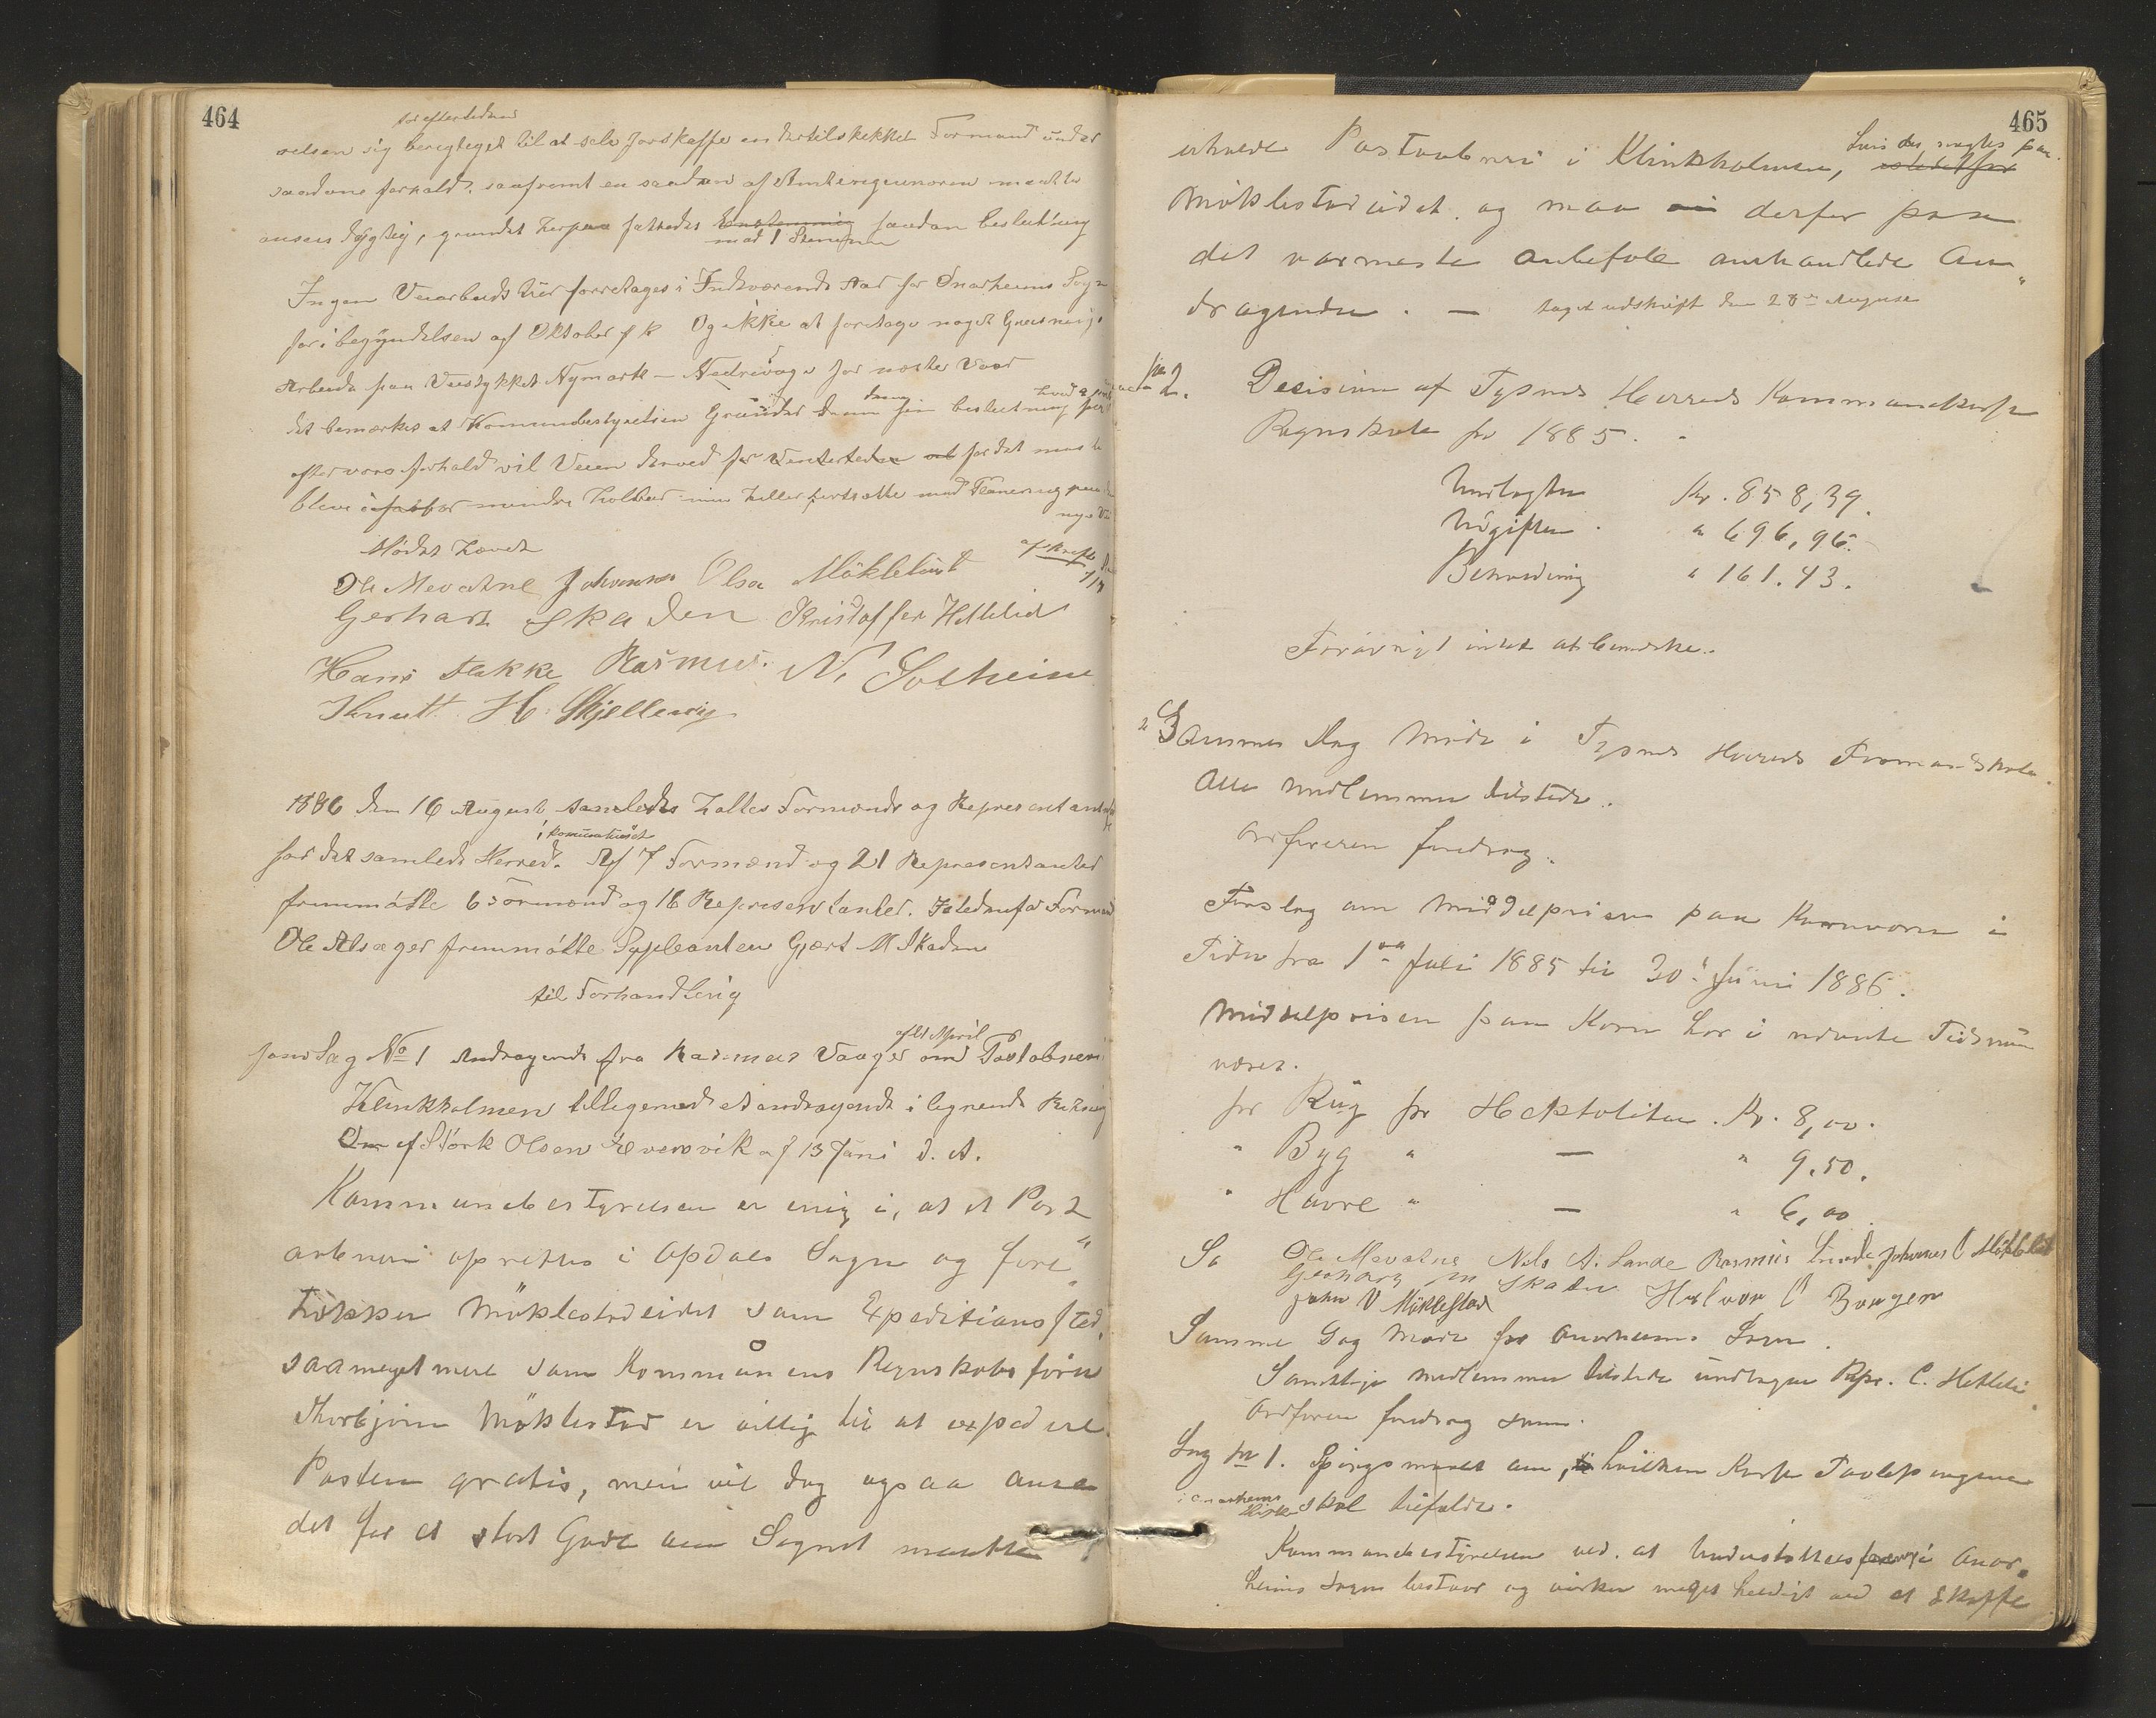 464
for eftertiden
relsen sig berettiget til at selv forskaffe en dertil skikket Formand under
saadane forhold, saafremt en saadan af Amtsingeniøren maatte
ansees dygtig, grundet herpaa fattedes Enstemmig saadan beslutning
mod 1 Stemme
Ingen Veiarbeide her forretages i Indeværende Aar for Onarheims Sogn
før i begyndelsen af Oktober f k Og ikke at foretage noget Grusnings
Arbeide paa Veistykket Nymark - Nedrevaage før næste Vaar
det bemærkes at Komunebestyrelsen Grunder denne sin beslutning
efter vore forhold vil Veien derved for Vintertiden for det meste
blive mindre holdbar
Mødet hævet
Ole Mevatne Johannes Olsen Møklebust
Gerhard Skaden Kristoffer Hetlelid
Hans Flakke Rasmus N. Solheim
Knutt H. Skjellevig
1886 den 16 August samledes holtes Formænds og Representant
i komunehuset
for det samlede Herred. Af 7 Formænd og 21 Representanter
fremmøtte 6 Formænd og 16 Representanter. Istedenfor Formand
Ole Alsager fremmøtte Suppleanten Gjert M Skaden
til Forhandling
af 21 April
som Sag No 1 Andragende fra Rasmus Vaage om Postabneri
Klinkholmen tilligemed et andragende i lignende Retning
af Størk Olsen Evensvik af 13 Juni d. A.
Kommunebestyrelsen er enig i, at et Post
aabneri oprettes i Opdals Sogn og fore
trækker Møklestadeidet som Expeditionssted,
saameget mere som Kommunens Regnskabsfører
Thorbjørn Møklestad er villig til at expedere
Posten gratis, men vil dog ogsaa anse
det for et stort Gode om Sognet maatte
465
erholde Postaabneri i Klinkholmen, hvis der nægtes paa
istedetfor
Møklestadeidet og maa derfor paa
det varmeste anbefale omhandlede An
dragender. — taget udskrift den 28de August
No 2. Decision af Tysnes Herreds Kommunekasse
Regnskab for 1885.
Indtægten Kr. 858,39.
Udgiften " 696,96.
Beholdning " 161.43.
Forøvrigt intet at bemærke.
Sammes Dag Møde i Tysnes Herreds Formandskab.
Alle medlemmer tilstede.
Ordføreren foredrog.
Forslag om Middelprisen paa Kornvarer i
Tiden fra 1ste Juli 1885 til 30te Juni 1886.
Middelprisen paa Korn har i nævnte Tidsrum
været.
for Rug pr Hektoliter. Kr. 8,00.
" Byg " — " 9.50.
" Havre " — " 6,00
Ole Mevatne Nels A. Lande Rasmus Lunde Johannes O Møklebst
Gerhard M Skaden Halvor O Borgen
John V Møklestad
Samme Dag Møde for Onarheims Sogn.
Samtlige medlemmer tilstede undtagen Rpr. C. Hetleli
Ordføren foredrog
Sag No 1. Spørgsmaalet om, hvilken Kasse Tavlepengene
i Onarheims Kirke skal tilfalde.
Kommunebestyrelsen ved. at Understøttelsesforening i Onar
heims Sogn bestaar og virker meget heldigt ved at skaffe